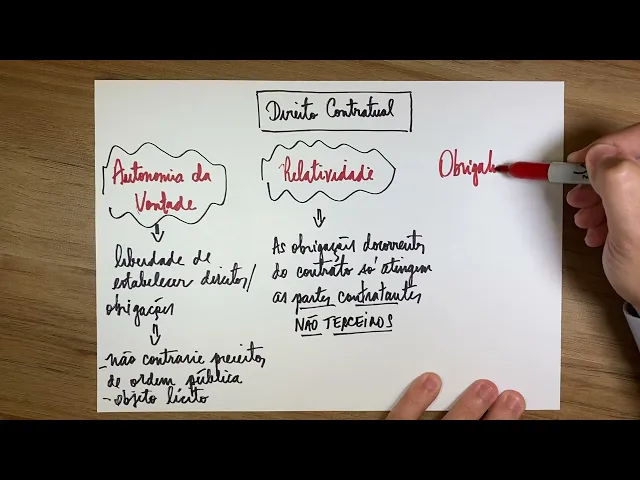 Direito Contratual
Autonomia da
Vontade
liberdade de
estabelecer direitos/
obrigações
- não contrarie preceitos
de ordem pública
- objeto lícito
Relatividade
As obrigações decorrentes
do contrato só atingem
as partes contratantes
NÃO TERCEIROS
Obrigat